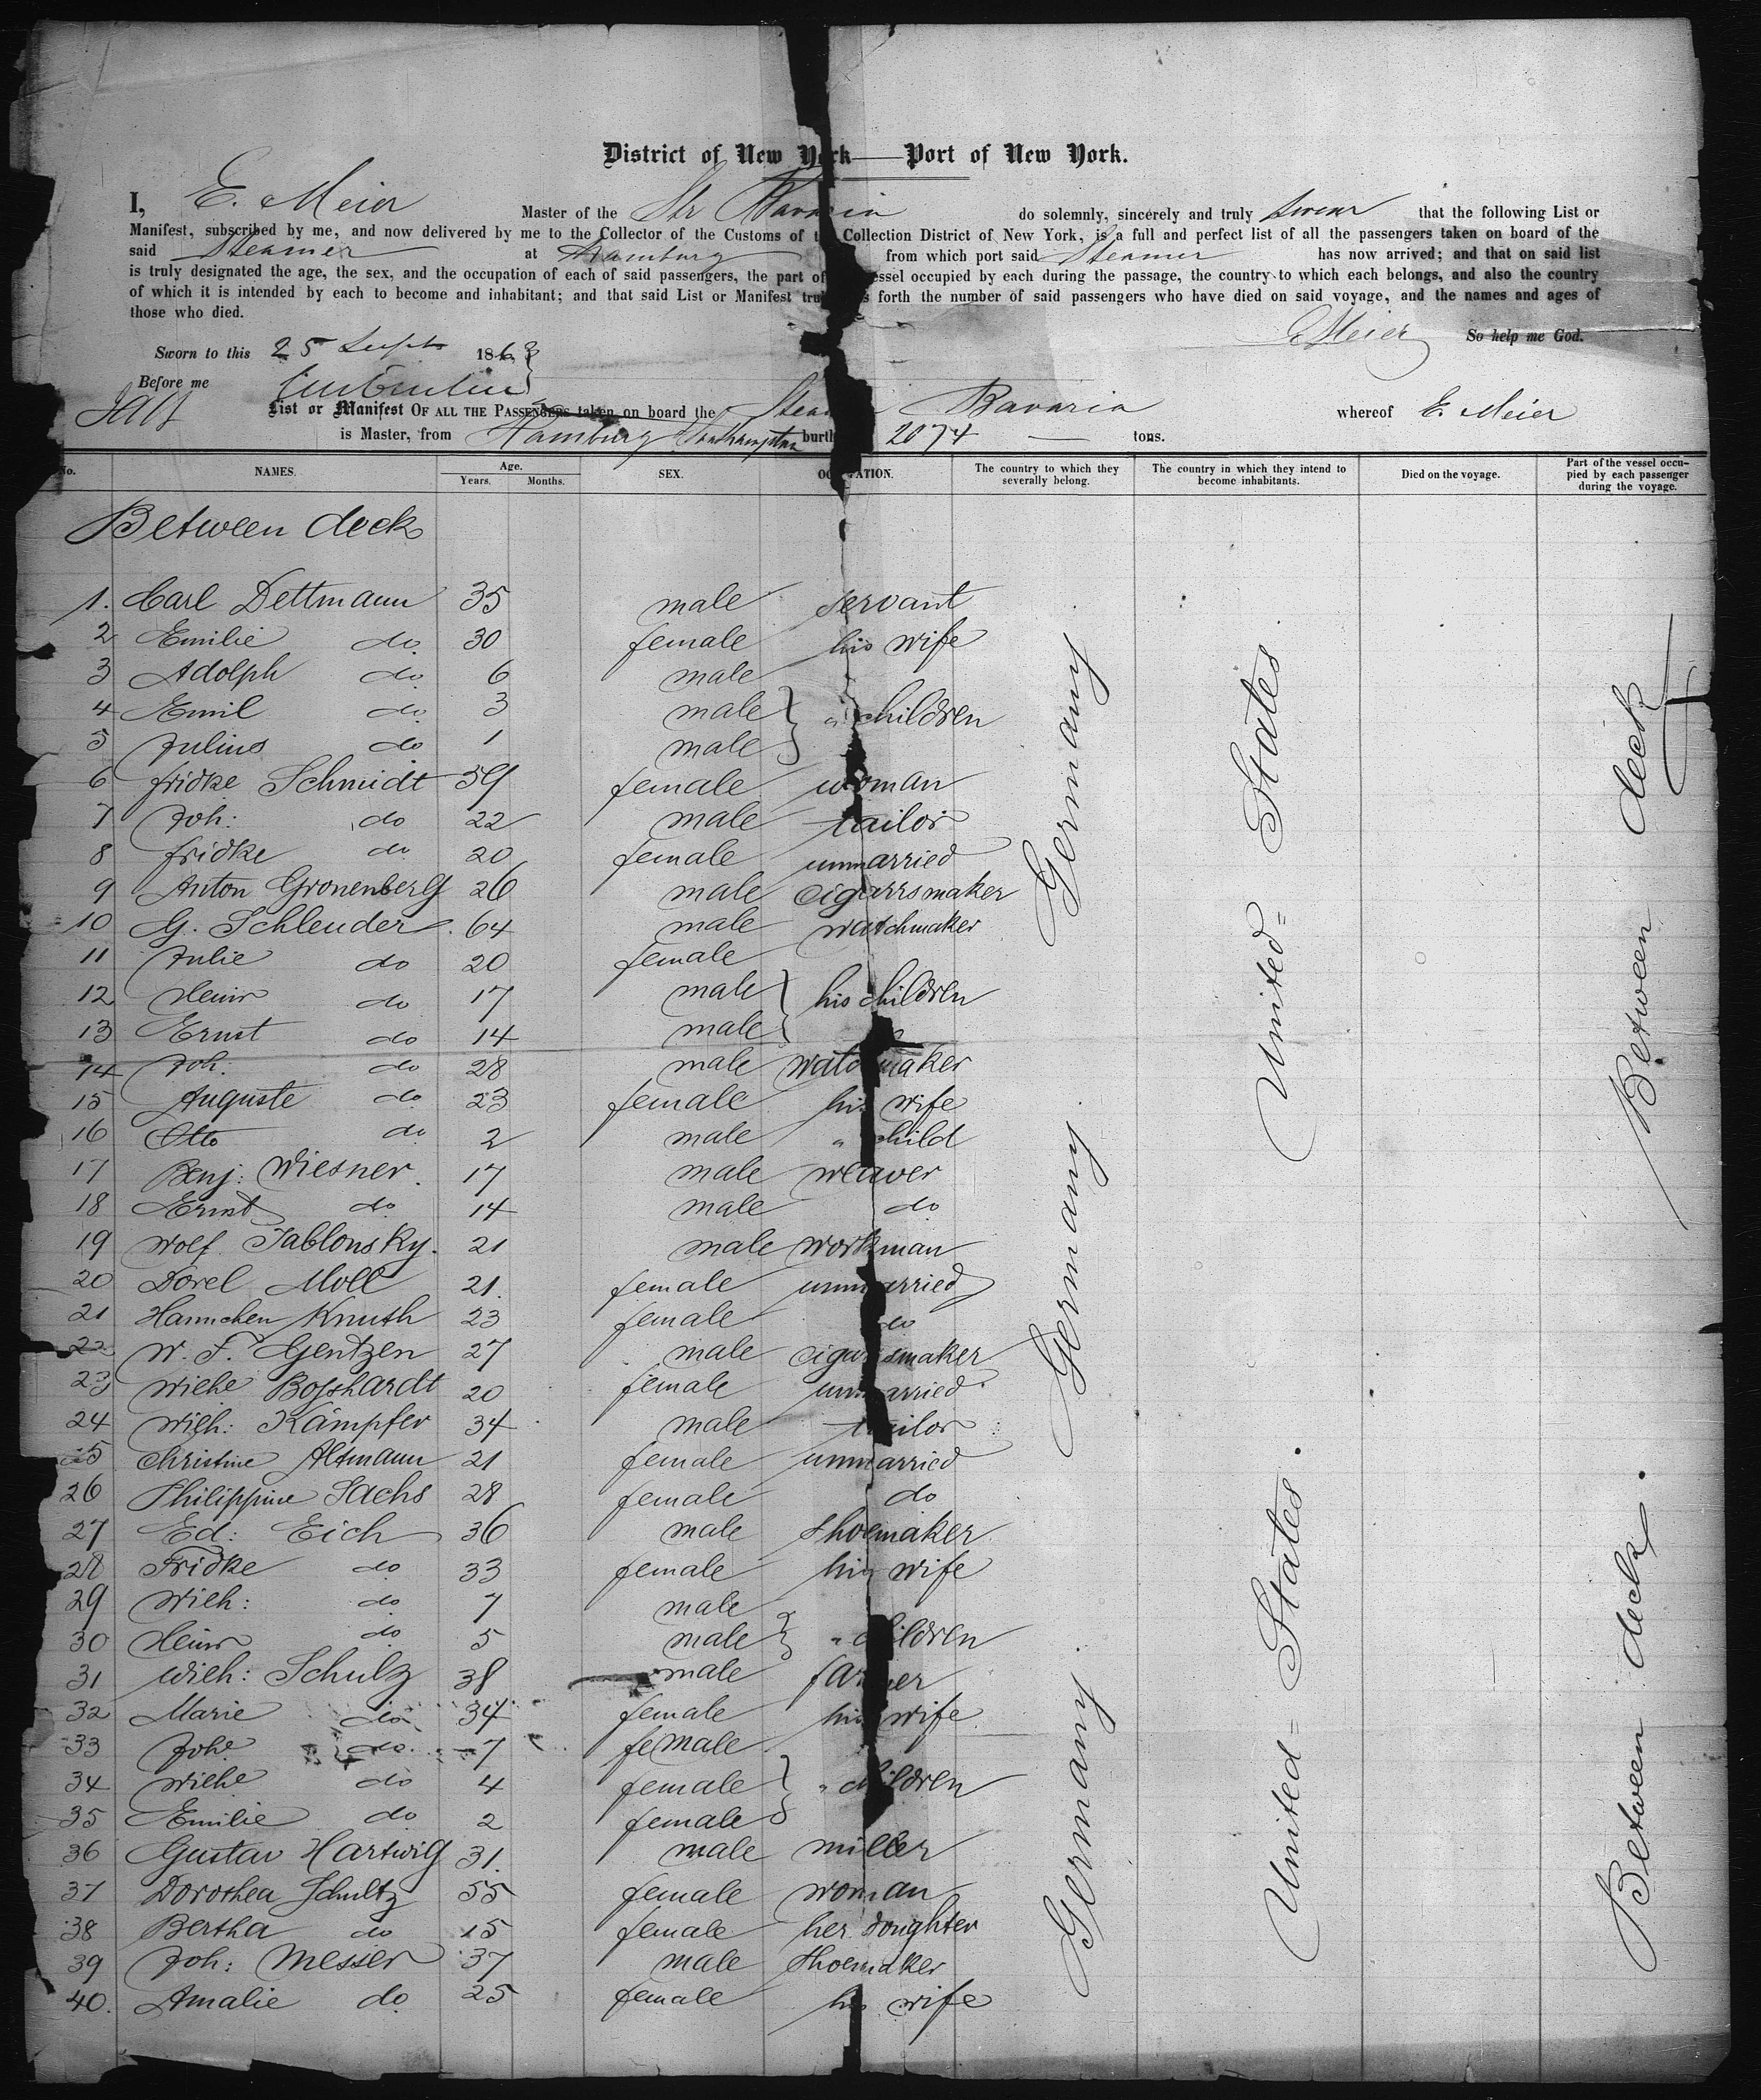 District of New York — Port of New York.
I, E. Meier Master of the Str Bavaria do solemnly, sincerely and truly swear that the following List or
Manifest, subscribed by me, and now delivered by me to the Collector of the Customs of the Collection District of New York, is a full and perfect list of all the passengers taken on board of the
said Steamer at Hamburg from which port said Steamer has now arrived; and that on said list
is truly designated the age, the sex, and the occupation of each of said passengers, the part of vessel occupied by each during the passage, the country to which each belongs, and also the country
of which it is intended by each to become and inhabitant; and that said List or Manifest truly forth the number of said passengers who have died on said voyage, and the names and ages of
those who died.
E Meier So help me God.
Sworn to this 25 Sept 1863
Before me
List or Manifest OF ALL THE PASSENGERS taken on board the Steamer Bavaria whereof E. Meier
is Master, from Hamburg Southampton burth 2074 — tons.
No. NAMES. Age. Years. Months. SEX. OCCUPATION. The country to which they severally belong. The country in which they intend to become inhabitants. Died on the voyage. Part of the vessel occupied by each passenger during the voyage.
Between deck
1. Carl Dettmann 35 male servant
2 Emilie do. 30 female his wife
3 Adolph do. 6 male
4 Emil do. 3 male } " children
5 Julius do 1 male
6 fridke Schmidt 39 female woman
7 Joh: do 22 male tailor
8 fridke do 20 female unmarried
9 Anton Gronenberg 26 male cigarrsmaker
10 G. Schleuder. 64 male watchmaker
11 Julie do 20 female
12 Heinr do 17 male } his children
13 Ernst do 14 male
14 Joh. do 28 male watchmaker
15 Auguste do 23 female his wife
16 Otto do 2 male " child
17 Benj: Wiesner. 17 male weaver
18 Ernst do 14 male do
19 Wolf Jablonsky. 21 male workman
20 Dorel Moll 21. female unmarried
21 Hannchen Knuth 23 female do
22 W. F. Gentzen 27 male cigarrsmaker
23 Wilhe Bosshardt 20 female unmarried
24 Wilh: Kämpfer 34 male tailor
25 Christine Altmann 21 female unmarried
26 Philippine Sachs 28 female do
27 Ed: Eich 36 male shoemaker
28 Fridke do 33 female his wife
29 Wilh: do 7 male
30 Heinr do 5 male } " children
31 Wilh: Schulz 38 male farmer
32 Marie do 34 female his wife
33 Johe do. 7 female
34 Wilhe do 4 female } " children
35 Emilie do 2 female
36 Gustav Hartwig 31. male miller
37 Dorothea Schultz 55 female woman
38 Bertha do 15 female her doughter
39 Joh: Messer 37 male Shoemaker
40. Amalie do. 25 female his wife
Germany
Germany
Germany
United = States
United = States
Between deck
Between deck